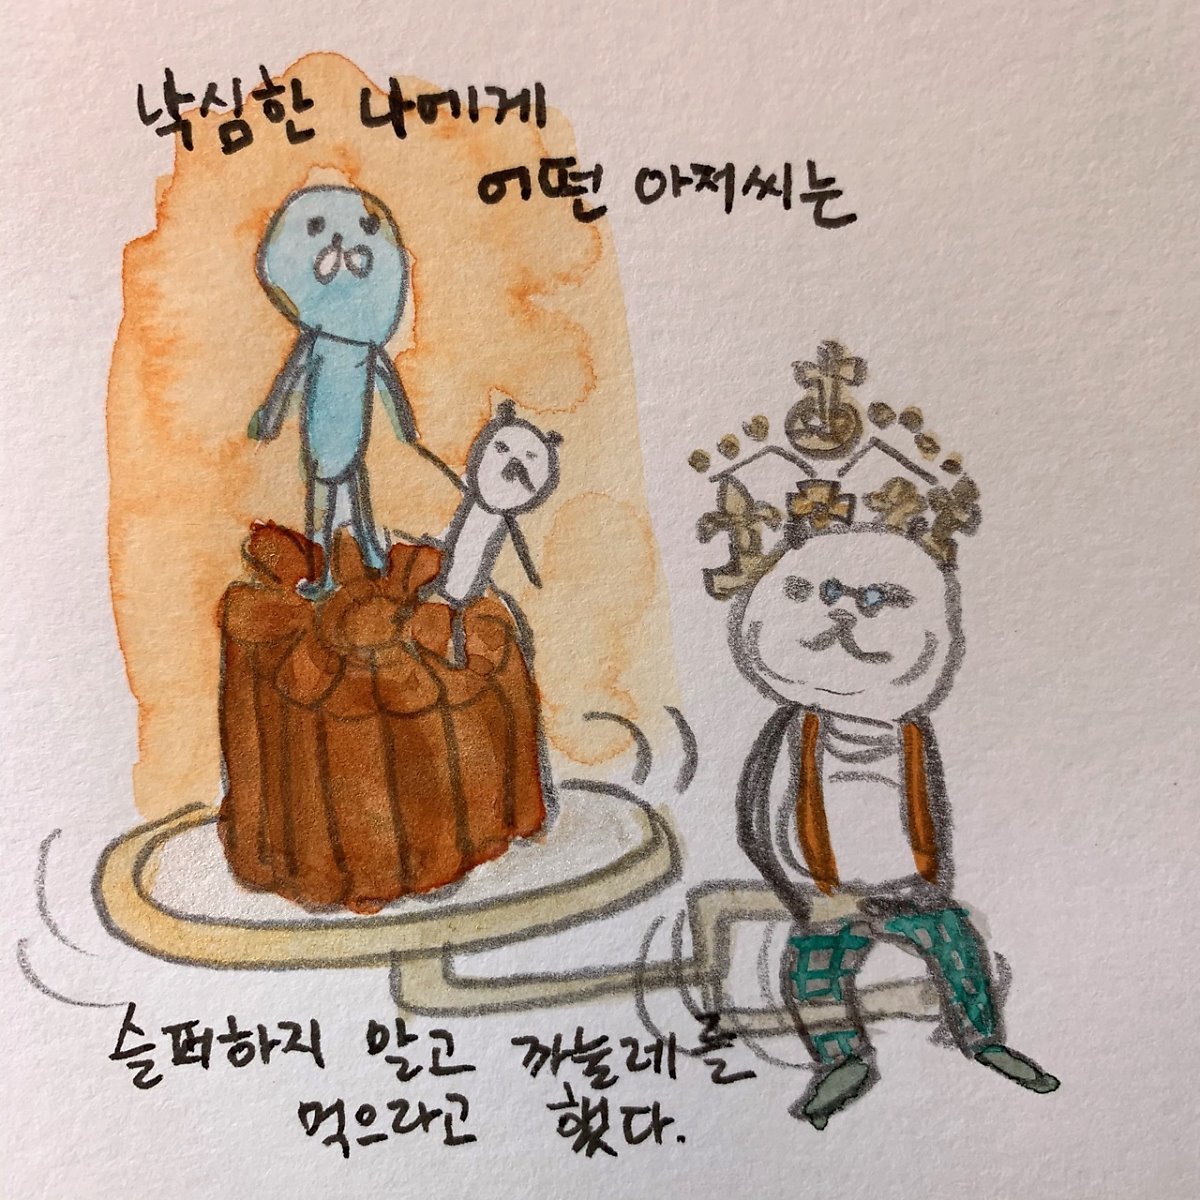 낙심한 나에게
어떤 아저씨는
슬퍼하지 말고 까눌레를
먹으라고 했다.